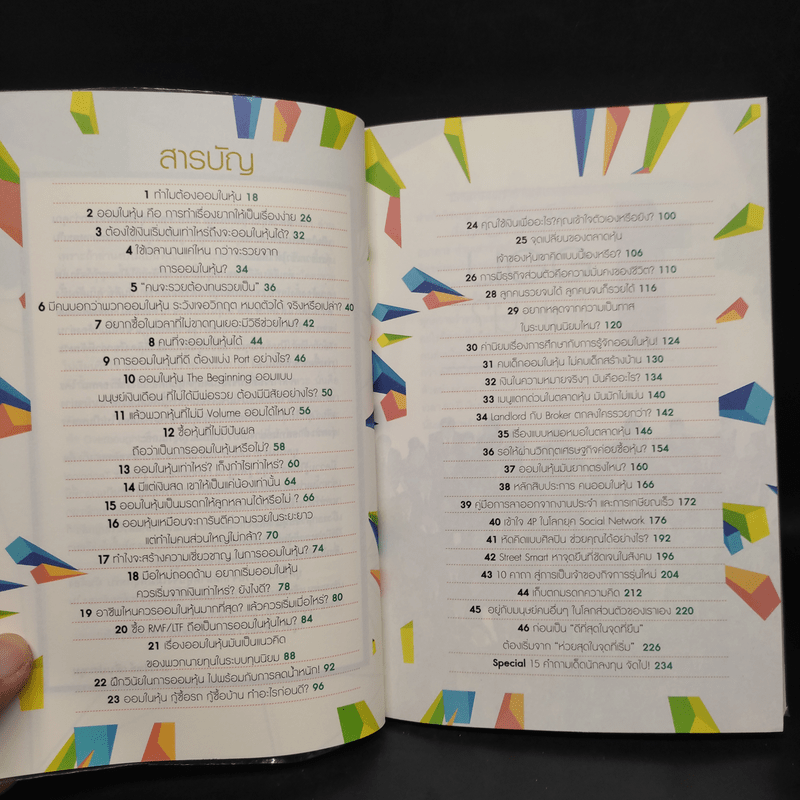 สารบัญ
1 ทำไมต้องออมในหุ้น 18
2 ออมในหุ้น คือ การทำเรื่องยากให้เป็นเรื่องง่าย 26
3 ต้องใช้เงินเริ่มต้นเท่าไหร่ถึงจะออมในหุ้นได้? 32
4 ใช้เวลานานแค่ไหน กว่าจะรวยจาก
การออมในหุ้น? 34
5 "คนจะรวยต้องทนรวยเป็น" 36
6 มีคนบอกว่าพวกออมในหุ้น ระวังเจอวิกฤต หมดตัวได้ จริงหรือเปล่า? 40
7 อยากซื้อในเวลาที่ไม่ขาดทุนเยอะมีวิธีช่วยไหม? 42
8 คนที่จะออมในหุ้นได้ 44
9 การออมในหุ้นที่ดี ต้องแบ่ง Port อย่างไร? 46
10 ออมในหุ้น The Beginning ออมแบบ
มนุษย์เงินเดือน ที่ไม่ได้มีพ่อรวย ต้องมีนิสัยอย่างไร? 50
11 แล้วพวกหุ้นที่ไม่มี Volume ออมได้ไหม? 56
12 ซื้อหุ้นที่ไม่มีปันผล
ถือว่าเป็นการออมในหุ้นหรือไม่? 58
13 ออมในหุ้นเท่าไหร่? เก็งกำไรเท่าไหร่? 60
14 มีแต่เงินสด เขาให้เป็นแค่น้องเท่านั้น 64
15 ออมในหุ้นเป็นมรดกให้ลูกหลานได้หรือไม่ ? 66
16 ออมหุ้นเหมือนจะการันตีความรวยในระยะยาว
แต่ทำไมคนส่วนใหญ่ไม่กล้า? 70
17 ทำไงจะสร้างความเชี่ยวชาญ ในการออมในหุ้น? 74
18 มือใหม่ถอดด้าม อยากเริ่มออมในหุ้น
ควรเริ่มจากเงินเท่าไหร่? ยังไงดี? 78
19 อาชีพไหนควรออมในหุ้นมากที่สุด? แล้วควรเริ่มเมื่อไหร่? 80
20 ซื้อ RMF/LTF ถือเป็นการออมในหุ้นไหม? 84
21 เรื่องออมในหุ้นมันเป็นแนวคิด
ของพวกนายทุนในระบบทุนนิยม 88
22 ฝึกวินัยในการออมหุ้น ไปพร้อมกับการลดน้ำหนัก! 92
23 ออมในหุ้น กู้ซื้อรถ กู้ซื้อบ้าน ทำอะไรก่อนดี? 96
24 คุณใช้เงินเพื่ออะไร?คุณเข้าใจตัวเองหรือยัง? 100
25 จุดเปลี่ยนของตลาดหุ้น
เจ้าของหุ้นเขาคิดแบบนี้เองหรือ? 106
26 การมีธุรกิจส่วนตัวคือความมั่นคงของชีวิต? 110
28 ลูกคนรวยจบได้ ลูกคนจนก็รวยได้ 116
29 อยากหลุดจากความเป็นทาส
ในระบบทุนนิยมไหม? 120
30 ค่านิยมเรื่องการศึกษากับการรู้จักออมในหุ้น! 124
31 คนเด็กออมในหุ้น ไม่คบเด็กสร้างบ้าน 130
32 เงินในความหมายจริงๆ มันคืออะไร? 134
33 เมนูแดกด่วนในตลาดหุ้น มันมักไม่แม่น 140
34 Landlord กับ Broker ตกลงใครรวยกว่า? 142
35 เรื่องแบบหมอหมอในตลาดหุ้น 146
36 รอให้ผ่านวิกฤตเศรษฐกิจก่อยซื้อหุ้น? 154
37 ออมในหุ้นมันยากตรงไหน? 160
38 หลักสิบประการ คนออมในหุ้น 166
39 คู่มือการลาออกจากงานประจำ และการเกษียณเร็ว 172
40 เข้าใจ 4P ในโลกยุค Social Network 176
41 หัดคิดแบบศิลปิน ช่วยคุณได้อย่างไร? 192
42 Street Smart หาจุดยืนที่ชัดเจนในสังคม 196
43 10 คาถา สู่การเป็นเจ้าของกิจการรุ่นใหม่ 204
44 เก็บตกมรดกความคิด 212
45 อยู่กับมนุษย์คนอื่นๆ ในโลกส่วนตัวของเราเอง 220
46 ก่อนเป็น "ดีที่สุดในจุดที่ยืน"
ต้องเริ่มจาก "ห่วยสุดในจุดที่เริ่ม" 226
Special 15 คำถามเด็ดนักลงทุน จัดไป! 234